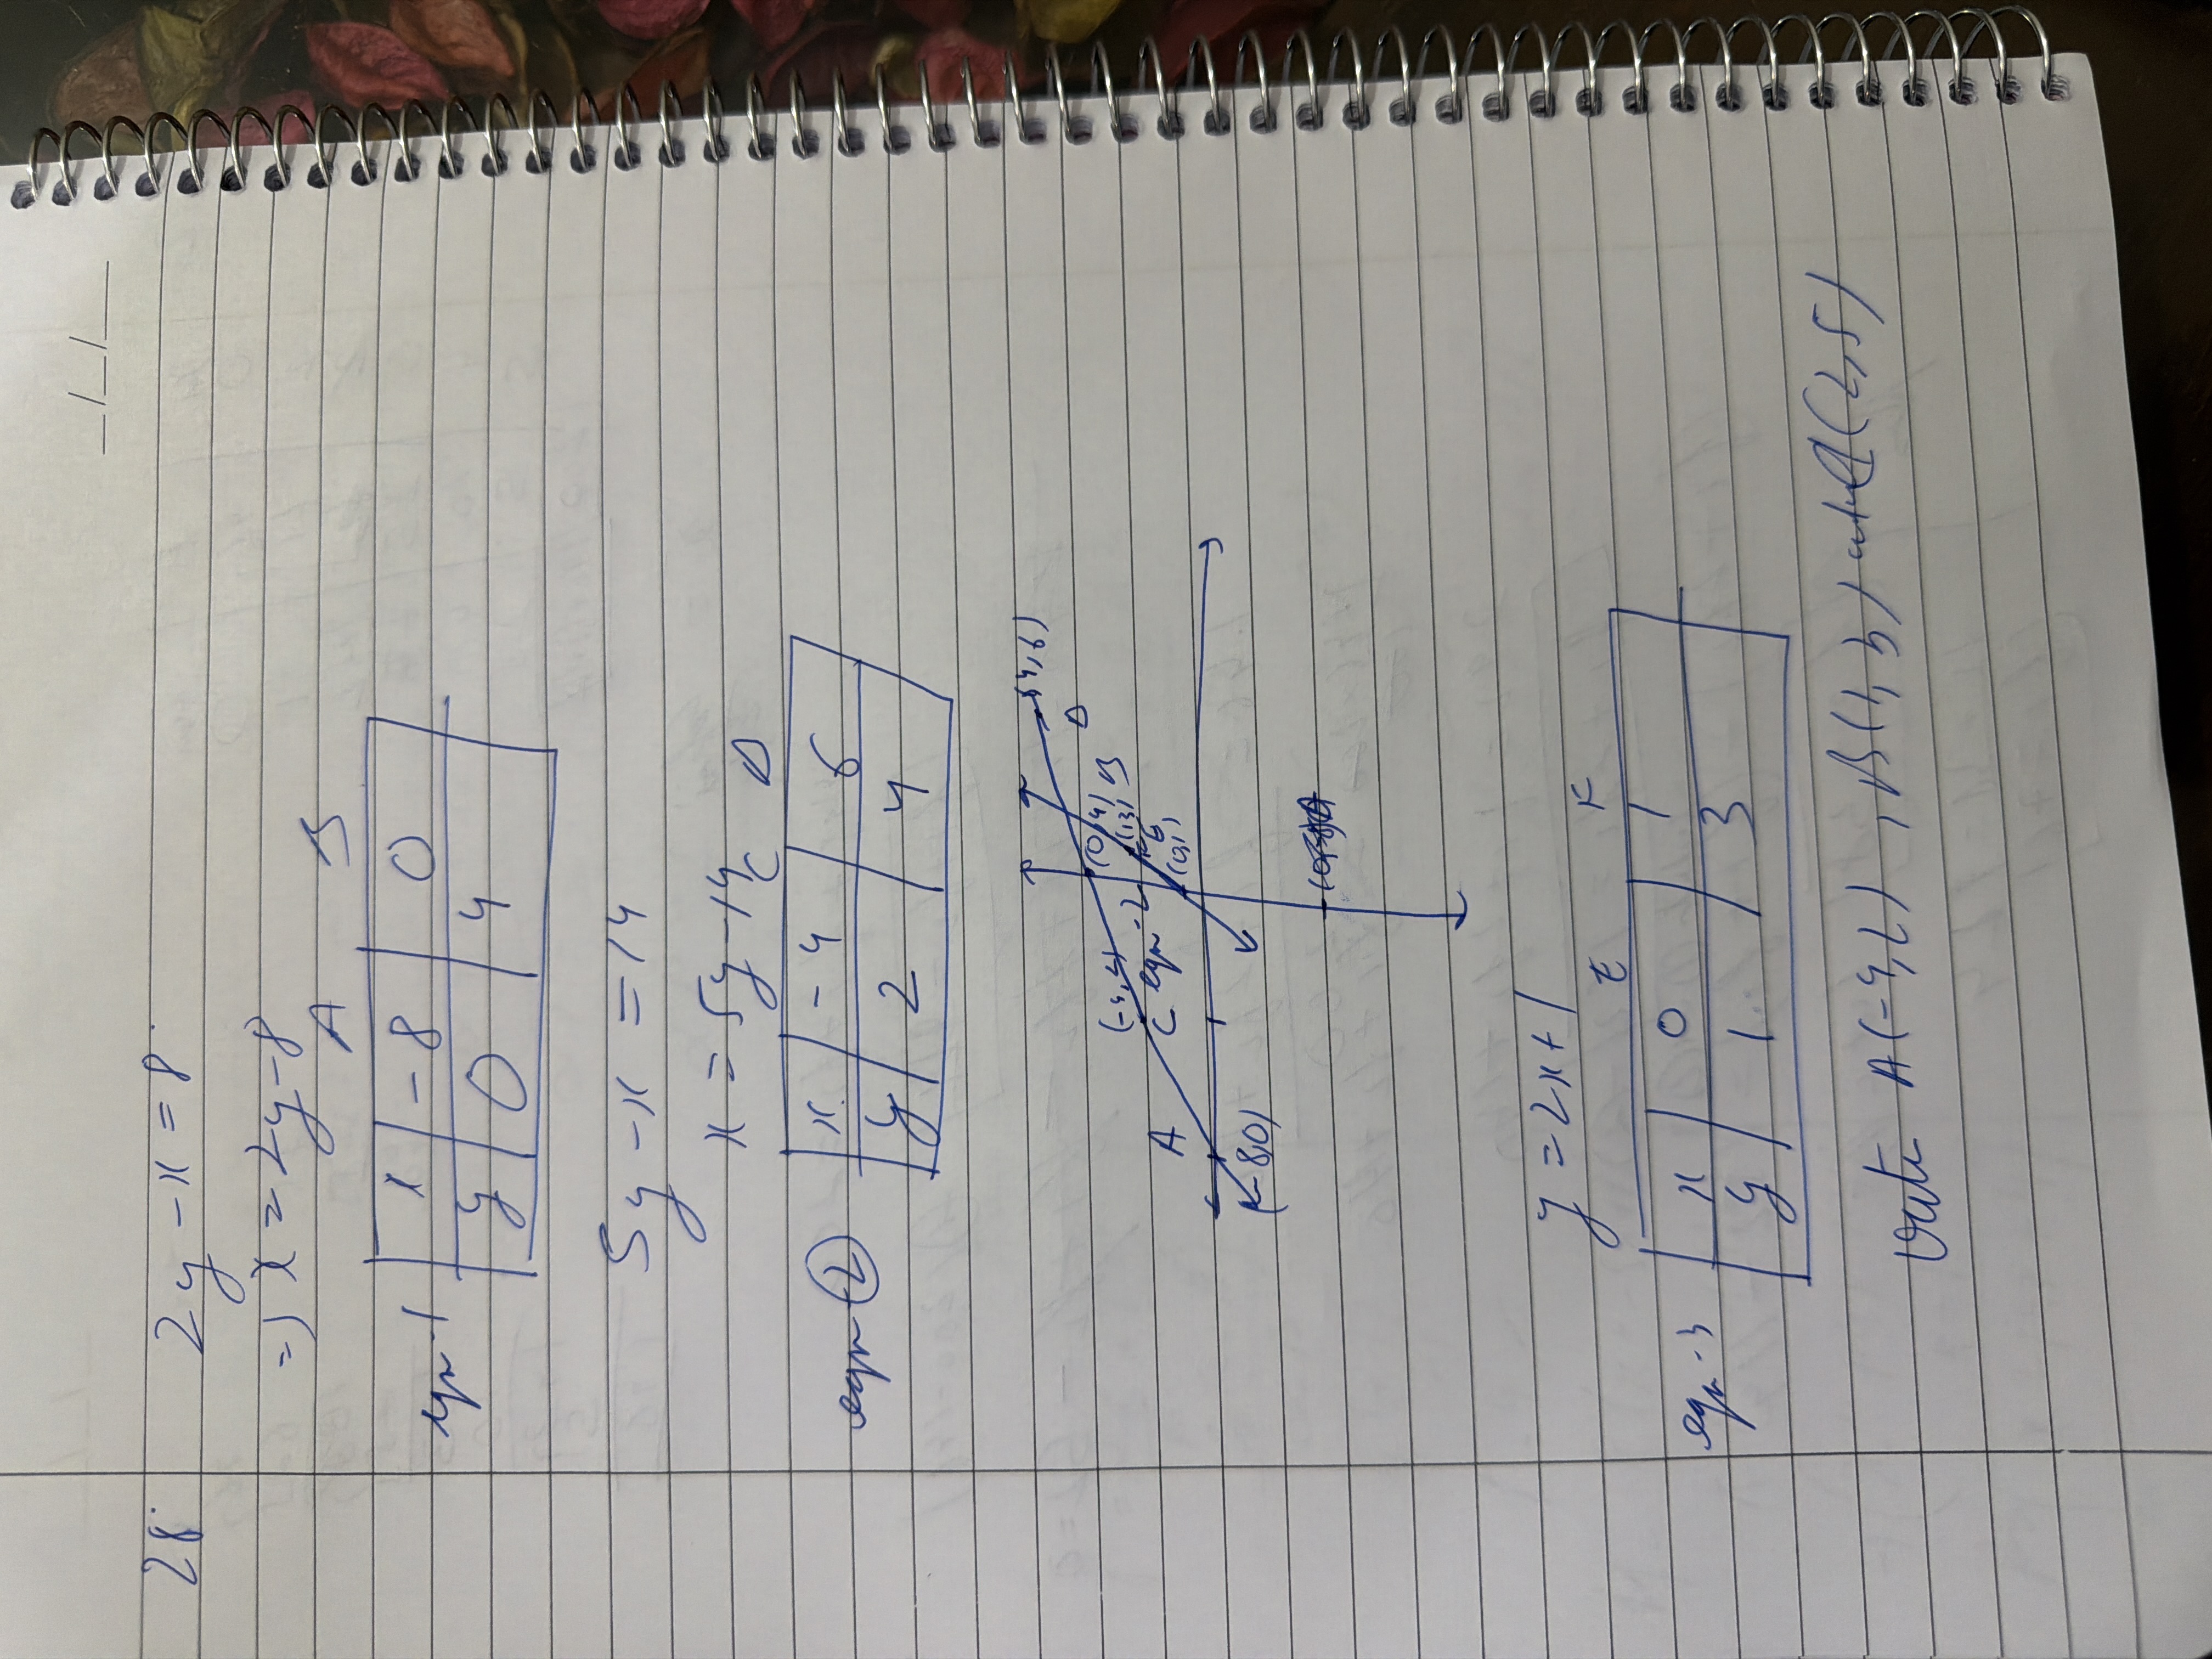 _/_/_
28. 2y - x = 8.
=) x = 2y - 8
A B
eqn-1 x | -8 | 0
y | 0 | 4
5y - x = 14
x = 5y - 14
C D
eqn-(2) x | -4 | 6
y | 2 | 4
(4,6)
D
(0,4) B
(1,3)
(-4,2)
C eqn-2
(0,1)
A
(-8,0)
y = 2x + 1
E F
eqn-3 x | 0 | 1
y | 1 | 3
A(-4,2), B(1,3) and (2,5)